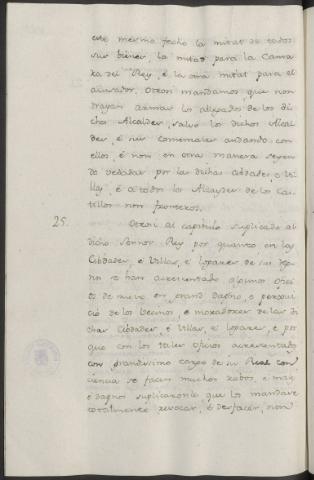 este mesmo fecho la mitat de todos
sus bienes, la mitat para la Cama
ra del Rey, é la otra mitat para el
acusador. Otrosi mandamos que non
trayan armas los allegados de los di
chos Alcaldes, salvo los dichos Alcal
des, é sus comensales andando con
ellos, é non en otra manera seyen
do vedadas por las dichas cibdades, é Vi
llas, é a todos los Alcaydes de los Cas
tillos non fronteros.
25. Otrosi al capitulo suplicado al
dicho Sennor Rey por quanto en las
Cibdades, é Villas, é logares de sus Rey
nos se han acrecentado algunos ofici
os de nuevo en grand dagno, e perjui
cio de los Vecinos, é moradores de las di
chas Cibdades, é Villas, é logares, é por
que con los tales oficios acrecentados
con grandissimo cargo de su Real con
ciencia se facen muchos robos, e males
e dagnos suplicaronle que los mandase
totalmente revocar, é desfacer, non